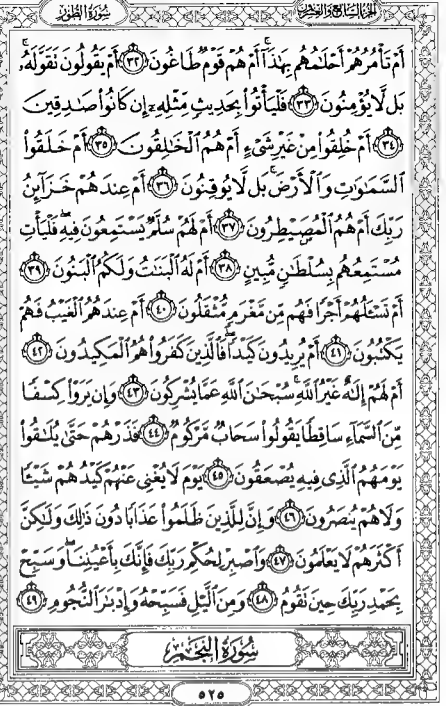 الجزء السابع والعشرون سُورَةُ الطُّورِ
أَمْ تَأْمُرُهُمْ أَحْلَامُهُم بِهَٰذَا أَمْ هُمْ قَوْمٌ طَاغُونَ ٣٢ أَمْ يَقُولُونَ تَقَوَّلَهُ
بَل لَّا يُؤْمِنُونَ ٣٣ فَلْيَأْتُوا بِحَدِيثٍ مِّثْلِهِ إِن كَانُوا صَادِقِينَ
٣٤ أَمْ خُلِقُوا مِنْ غَيْرِ شَيْءٍ أَمْ هُمُ الْخَالِقُونَ ٣٥ أَمْ خَلَقُوا
السَّمَاوَاتِ وَالْأَرْضَ بَل لَّا يُوقِنُونَ ٣٦ أَمْ عِندَهُمْ خَزَائِنُ
رَبِّكَ أَمْ هُمُ الْمُصَيْطِرُونَ ٣٧ أَمْ لَهُمْ سُلَّمٌ يَسْتَمِعُونَ فِيهِ فَلْيَأْتِ
مُسْتَمِعُهُم بِسُلْطَانٍ مُّبِينٍ ٣٨ أَمْ لَهُ الْبَنَاتُ وَلَكُمُ الْبَنُونَ ٣٩
أَمْ تَسْأَلُهُمْ أَجْرًا فَهُم مِّن مَّغْرَمٍ مُّثْقَلُونَ ٤٠ أَمْ عِندَهُمُ الْغَيْبُ فَهُمْ
يَكْتُبُونَ ٤١ أَمْ يُرِيدُونَ كَيْدًا فَالَّذِينَ كَفَرُوا هُمُ الْمَكِيدُونَ ٤٢
أَمْ لَهُمْ إِلَٰهٌ غَيْرُ اللَّهِ سُبْحَانَ اللَّهِ عَمَّا يُشْرِكُونَ ٤٣ وَإِن يَرَوْا كِسْفًا
مِّنَ السَّمَاءِ سَاقِطًا يَقُولُوا سَحَابٌ مَّرْكُومٌ ٤٤ فَذَرْهُمْ حَتَّىٰ يُلَاقُوا
يَوْمَهُمُ الَّذِي فِيهِ يُصْعَقُونَ ٤٥ يَوْمَ لَا يُغْنِي عَنْهُمْ كَيْدُهُمْ شَيْئًا
وَلَا هُمْ يُنصَرُونَ ٤٦ وَإِنَّ لِلَّذِينَ ظَلَمُوا عَذَابًا دُونَ ذَٰلِكَ وَلَٰكِنَّ
أَكْثَرَهُمْ لَا يَعْلَمُونَ ٤٧ وَاصْبِرْ لِحُكْمِ رَبِّكَ فَإِنَّكَ بِأَعْيُنِنَا وَسَبِّحْ
بِحَمْدِ رَبِّكَ حِينَ تَقُومُ ٤٨ وَمِنَ اللَّيْلِ فَسَبِّحْهُ وَإِدْبَارَ النُّجُومِ ٤٩
سُورَةُ النَّجْمِ
٥٢٥